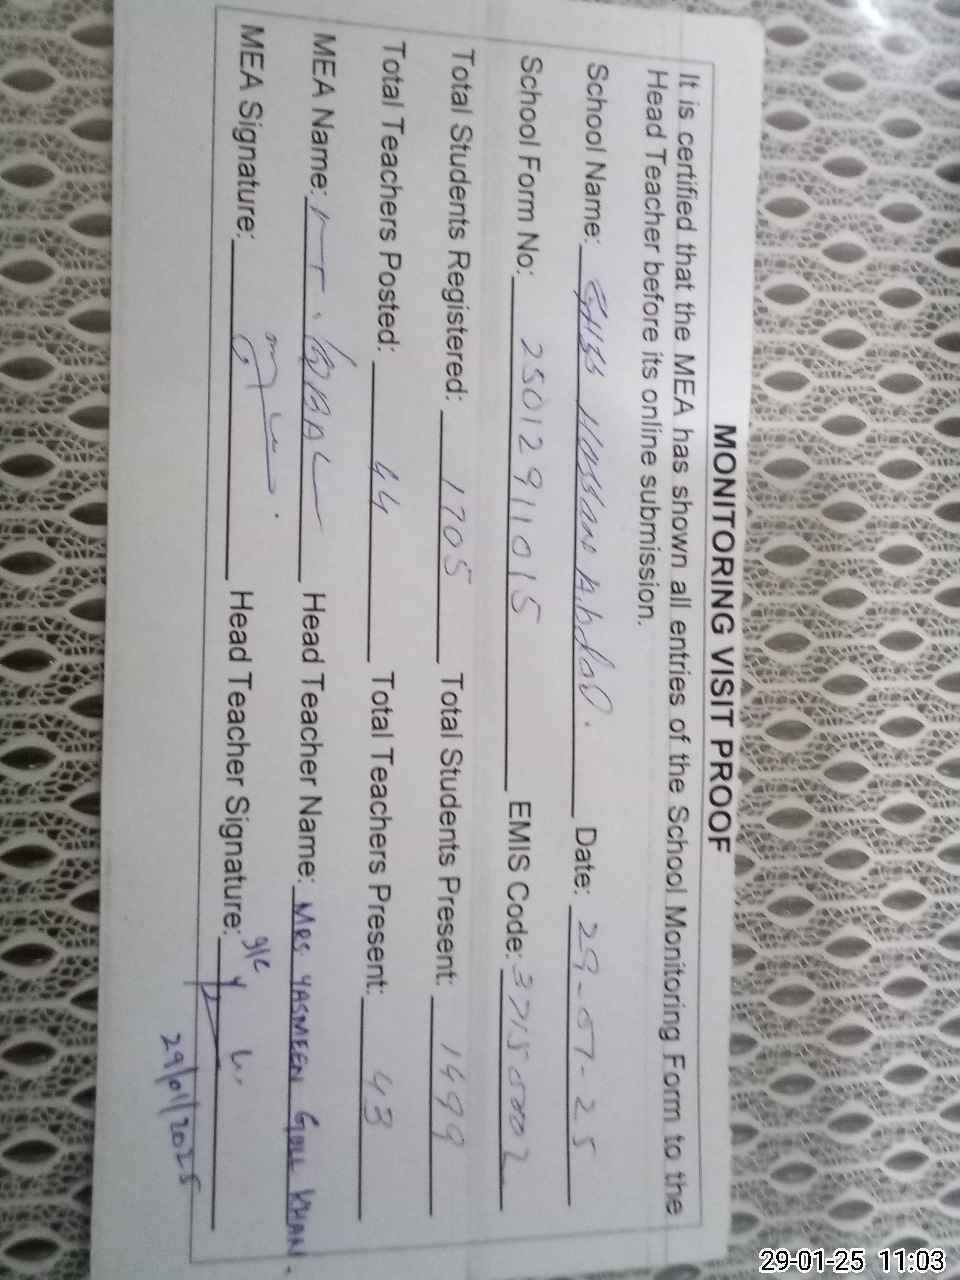 MONITORING VISIT PROOF
It is certified that the MEA has shown all entries of the School Monitoring Form to the
Head Teacher before its online submission.
School Name: GHSS Hassan Abdal. Date: 29-01-25
School Form No: 25012911015 EMIS Code: 37150002
Total Students Registered: 1705 Total Students Present: 1499
Total Teachers Posted: 44 Total Teachers Present: 43
MEA Name: IQBAL Head Teacher Name: MRS. YASMEEN GULL KHAN.
MEA Signature: Head Teacher Signature:
29/01/2025
29-01-25 11:03